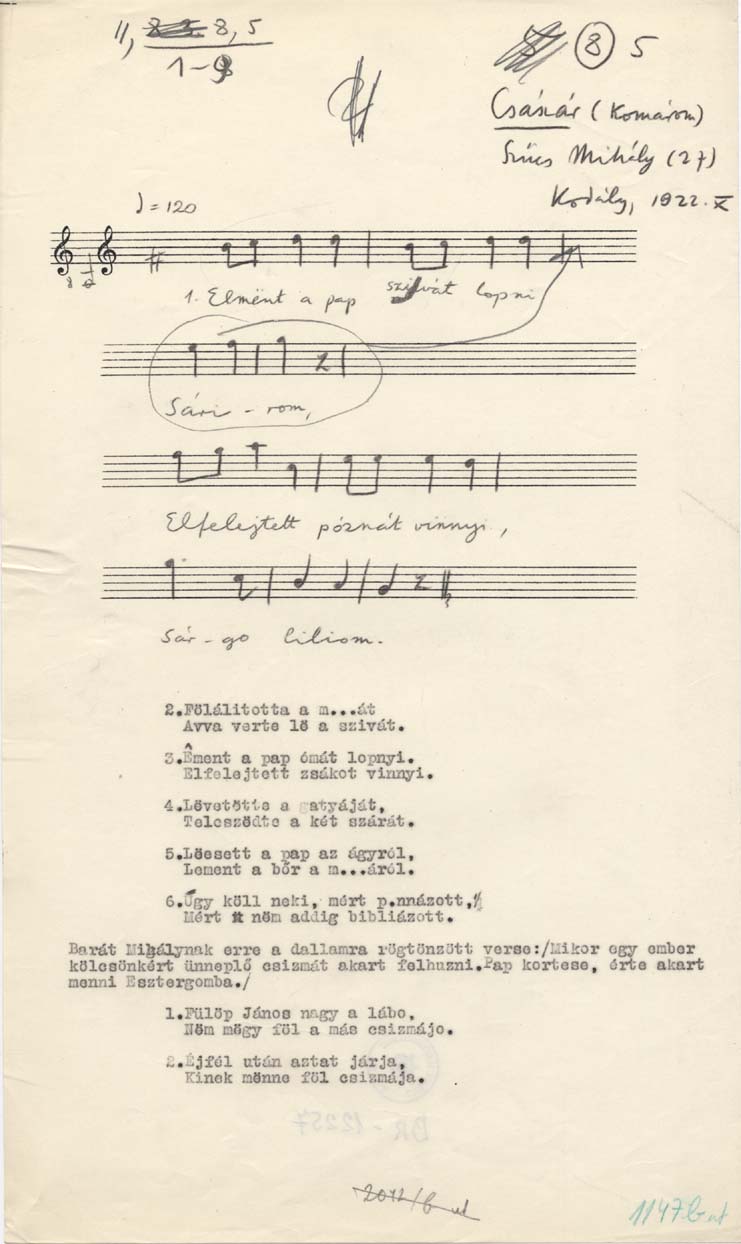 11, 8, 5
1-9
8 5
Császár (Komárom)
Szücs Mihály (27)
Kodály, 1922. X
♩=120
1. Elmënt a pap szilvát lopni
Sári - rom,
Elfelejtett póznát vinnyi,
Sár-go liliom.
2.Fölálitotta a m...át
Avva verte lö a szivát.
3.Êment a pap ómát lopnyi.
Elfelejtett zsákot vinnyi.
4.Lövetötte a gatyáját,
Teleszödte a két szárát.
5.Löesett a pap az ágyról,
Lement a bőr a m...áról.
6.Úgy köll neki, mért p.nnázott,
Mért nöm addig bibliázott.
Barát Mihálynak erre a dallamra rögtönzött verse:/Mikor egy ember
kölcsönkért ünneplő csizmát akart felhuzni.Pap kortese, érte akart
menni Esztergomba./
1.Fülöp János nagy a lábo,
Nöm mögy föl a más csizmájo.
2.Éjfél után aztat járja,
Kinek mënne föl csizmája.
BR - 12257
2012/b ut
1147b ut